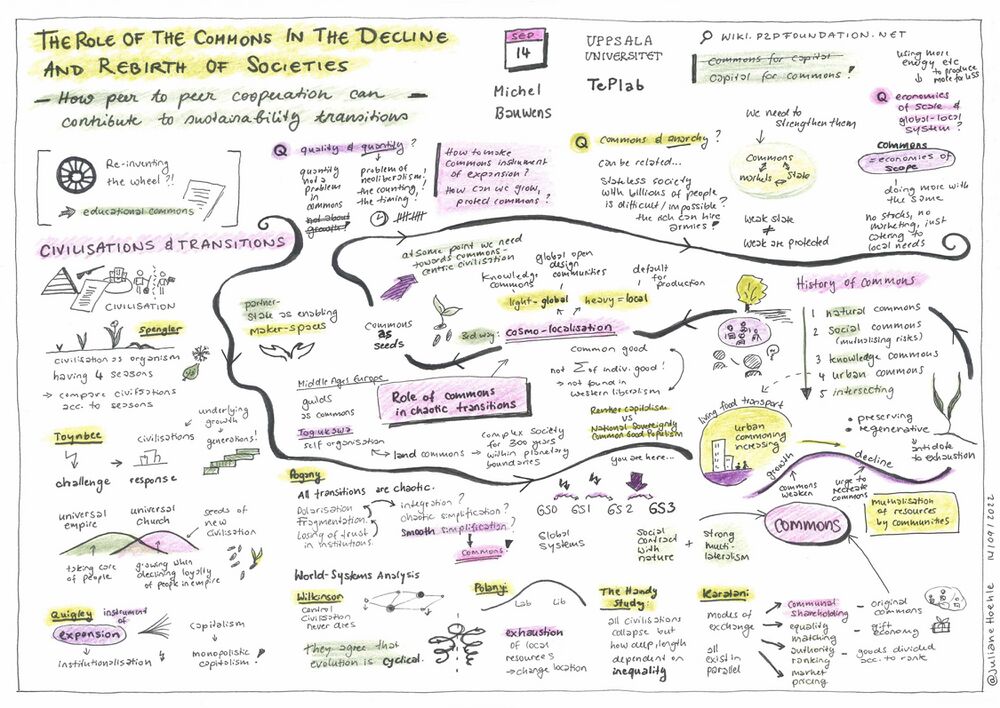 THE ROLE OF THE COMMONS IN THE DECLINE
AND REBIRTH OF SOCIETIES
- How peer to peer cooperation can -
contribute to sustainability transitions
SEP
14
Michel
Bauwens
UPPSALA
UNIVERSITET
TePlab
WIKI.P2PFOUNDATION.NET
commons for capital
capital for commons!
using more
energy etc
to produce
more for less
Q economies
of scale &
global-local
system?
commons
= economies of
scope
doing more with
the same
no stocks, no
marketing, just
catering to
local needs
Re-inventing
the wheel?!
educational commons
Q quality & quantity?
quantity
not a
problem
in
commons
not about
growth!
problem of
neoliberalism!
the counting,
the timing!
How to make
commons instrument
of expansion?
How can we grow,
protect commons?
Q commons & anarchy?
can be related...
Stateless society
with billions of people
is difficult/impossible?
the rich can hire
armies!
we need to
strengthen them
Commons
markets
State
weak state
≠
weak are protected
CIVILISATIONS & TRANSITIONS
CIVILISATION
Spengler
civilisation as organism
having 4 seasons
→ compare civilisations
acc. to seasons
Toynbee
civilisations
underlying
growth
generations!
challenge
response
universal
empire
universal
church
seeds of
new
civilisation
taking care
of people
growing when
declining loyalty
of people in empire
Quigley
instrument
of
expansion
institutionalisation
capitalism
monopolistic
capitalism!
partner-
State as enabling
maker-spaces
at some point we need
towards commons-
centric civilisation
commons
as
seeds
knowledge
commons
global open
design
communities
default
for
production
light = global
heavy = local
3rd way:
cosmo-localisation
Role of commons
in chaotic transitions
Middle Ages Europe
guilds
as commons
Tagukawa
self organisation
land commons
complex society
for 300 years
within planetary
boundaries
common good
not Σ of indiv. good!
→ not found in
western liberalism
Rentier capitalism
VS
National Sovereignty
Common Good Populism
you are here...
History of commons
1 natural commons
2 social commons
(mutualising risks)
3 knowledge commons
4 urban commons
5 intersecting
living food transport
urban
commoning
increasing
• preserving
• regenerative
antidote
to exhaustion
growth
commons
weaken
urge to
recreate
commons
decline
COMMONS
mutualisation
of resources
by communities
Pogany
All transitions are chaotic.
Polarisation
fragmentation.
Losing of trust
in institutions.
integration?
chaotic simplification?
Smooth simplification?
commons!
GS0
GS1
GS2
GS3
Global
Systems
Social
contract
with
nature
+
strong
multi-
lateralism
World-Systems Analysis
Wilkinson
central
civilisation
never dies
they agree that
evolution is cyclical.
Polanyi
Lab
Lib
exhaustion
of local
resources
→ change location
The Handy
Study:
all civilisations
collapse but
how deep/length
dependent on
inequality
Karatani
modes of
exchange
all
exist in
parallel
communal
shareholding
equality
matching
authority
ranking
market
pricing
original
commons
gift
economy
goods divided
acc. to rank
@Juliane Hoehle 14/09/2022